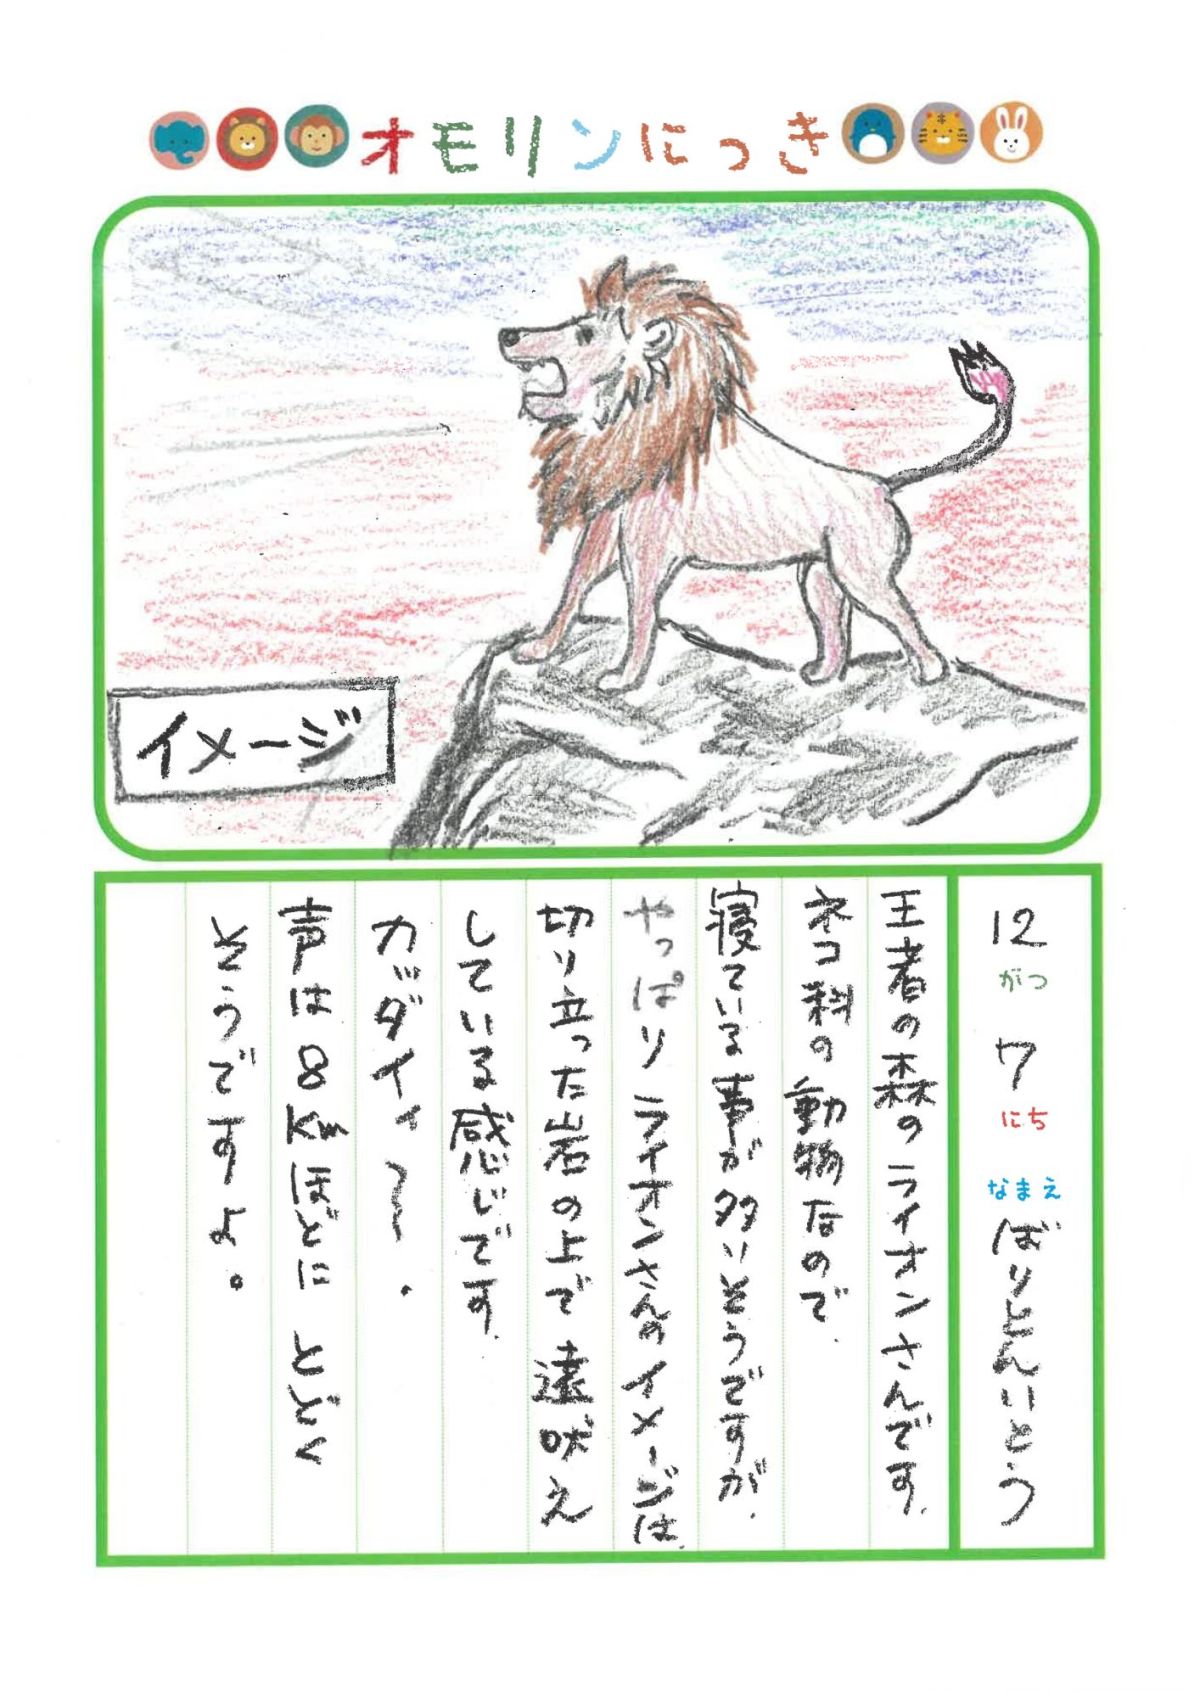 オモリンにっき
イメージ
12がつ7にち なまえ ばりとんいとう
王者の森のライオンさんです.
ネコ科の動物なので.
寝ている事が多いそうですが.
やっぱりライオンさんのイメージは.
切り立った岩の上で遠吠え
している感じです.
カッダイィ〜.
声は8Kmほどに とどく
そうですよ。